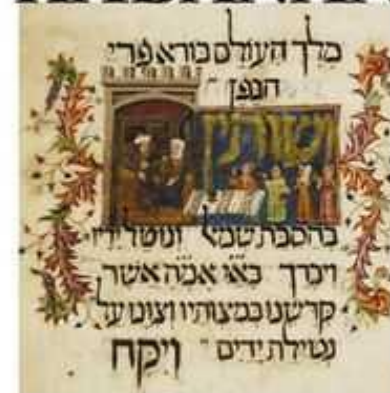 מלך העולם בורא פרי
הגפן
ושותין
בהסבת שמאל ונוטל ידיו
ויברך באי׳ אמ״ה אשר
קדשנו במצותיו וצונו על
נטילת ידים ויקח